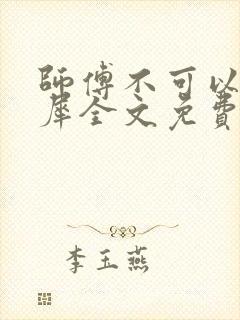 師傅不可以
犀全文免費
李玉燕